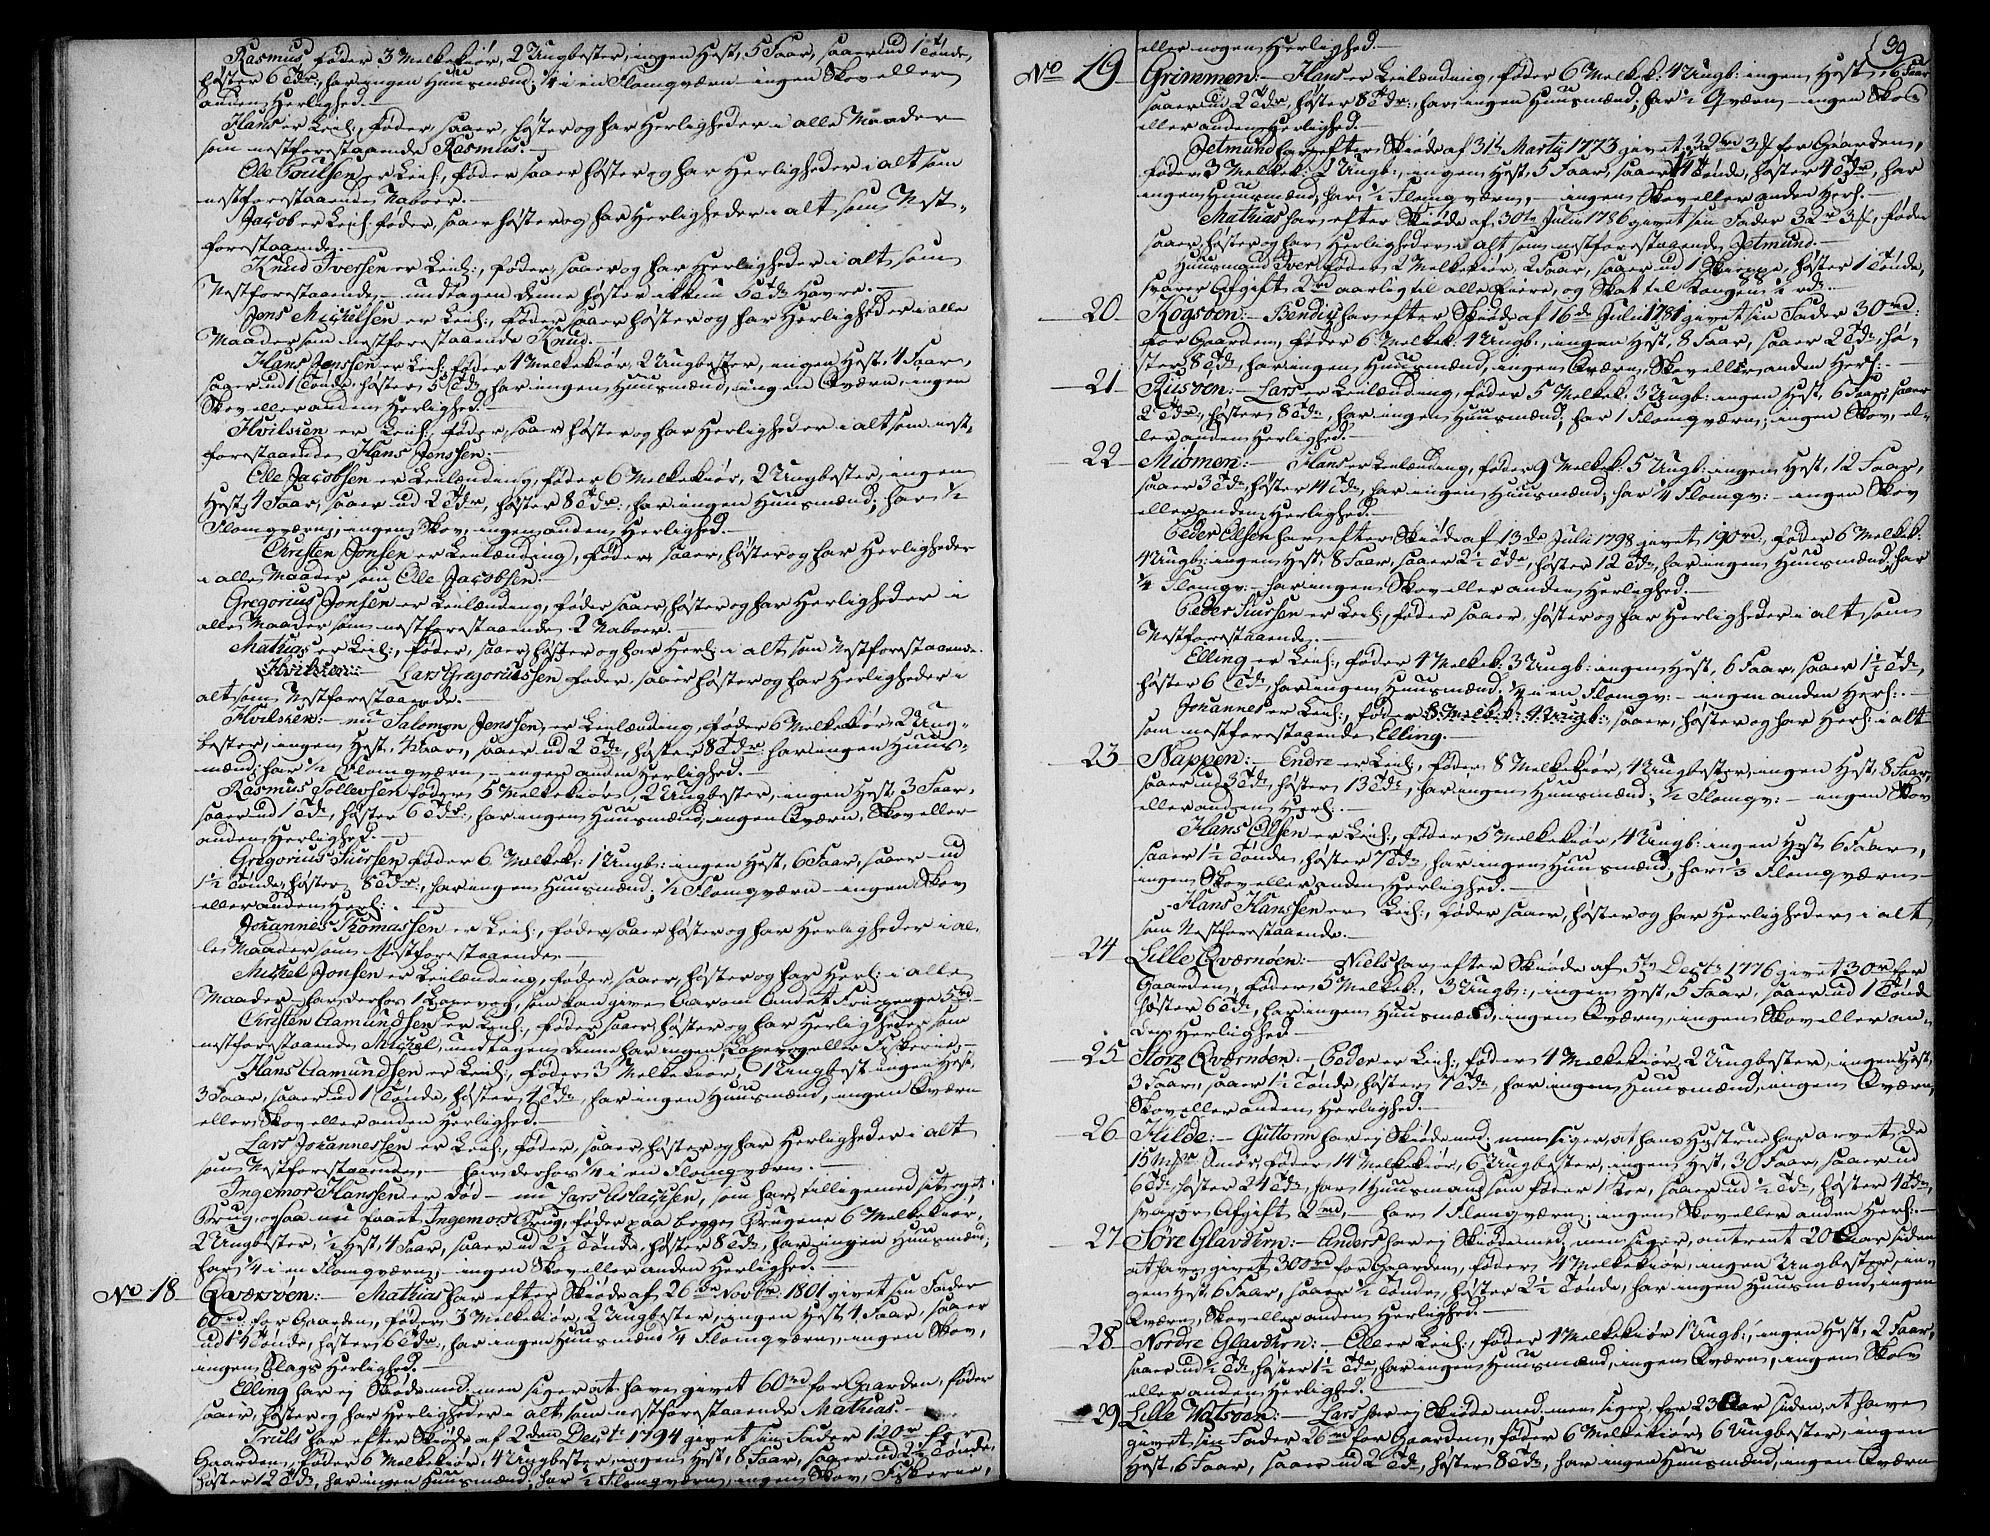 Rasmus føder 3 Melkekiør, 2 Ungbester, ingen Hest, 5 Faar, saaer ud 1 Tønde,
høster 6 Tdr, har ingen Huusmænd; ¼ i en Flomqværn ingen Skov eller
anden Herlighed.
Hans er Leil:, føder, saaer, høster og har Herligheder i alle Maader
som nestforestaaende Rasmus.
Ole Poulsen er Leil:, føder saaer høster og har Herligheder i alt som
nestforestaaende Naboer.
Jacob er Leil: føder, saaer høster og har Herligheder i alt som Nest-
forestaaende.
Knud Iversen er Leil:, føder, saaer og har Herligheder i alt som
Nestforestaaende, undtagen denne høster ikkun 5 Tdr Havre.
Jens Michelsen er Leil:, føder saaer høster og har Herligheder i alle
Maader som nestforestaaende Knud.
Hans Jenssen er Leil: føder 4 Melkekiør, 2 Ungbester, ingen Hest, 4 Faar,
saaer ud 1 Tønde, høster 5 Tdr, har ingen Huusmænd, ingen Qværn, ingen
Skov eller anden Herlighed.
Hvilsien er Leil: føder, saaer høster og har Herligheder i alt som nest-
forestaaende Hans Jenssen.
Ole Jacobsen er Leilænding, føder 6 Melkekiør, 2 Ungbester, ingen
Hest, 4 Faar, saaer ud 2 Tdr, høster 8 Tdr:, har ingen Huusmænd; har ½
Flomqværn; ingen Skov, ingen anden Herlighed.
Christen Jonsen er Leilænding, føder, saaer, høster og har Herligheder
i alle Maader som Ole Jacobsen.
Gregorius Jonsen er Leilænding, føder saaer, høster og har Herligheder i
alle Maader som nestforestaaende 2 Naboer.
Mathias er Leil:, føder, saaer, høster og har Herl: i alt som Nestforestaaende.
Hvilsien: Lars Gregoriussen føder, saaer høster og har Herligheder i
alt som Nestforestaaende.
Hvilsien: nu Salomon Jenssen, er Leilænding, føder 6 Melkekiør, 2 Ung-
bester, ingen Hest, Faar, saaer ud 2 Tdr, høster 8 Tdr har ingen Huus-
mænd; har ½ Flomqværn, ingen anden Herlighed.
Rasmus Tollevsen føder 5 Melkekiør, 2 Ungbester, ingen Hest, 3 Faar,
saaer ud 1 Tde, høster 6 Tdr:, har ingen Huusmænd; ingen Qværn, Skov eller
anden Herlighed.
Gregorius Siursen føder 6 Melkek: 1 Ungb: ingen Hest, 6 Faar, saaer ud
1½ Tønde, høster 8 Tdr:, har ingen Huusmænd; ½ Flomqværn ingen Skov
eller anden Herl:.
Johannes Thomassen er Leil:, føder saaer høster og har Herligheder i al-
le Maader som Nestforestaaende.
Michel Jonsen er Leilænding, føder, saaer, høster og har Herl: i alle
Maader, har derhos 1 Laxevog, som kan give Aar om Andet Friepenge 5 rd
Christen Aamundsen er Leil:, føder saaer, høster og har Herligheder som
nestforestaaende Michel, undtagen denne har ingen Laxevog eller Fiskerie.
Hans Aamundsen er Leil:, føder 3 Melkekiør, 1 Ungbest ingen Hest,
3 Faar, saaer ud 1 Tønde, høster 4 Tdr, har ingen Huusmænd, ingen Qværn
eller Skov eller anden Herlighed.
Lars Johannessen er Leil:, føder, saaer, høster og har Herligheder i alt
som Nestforestaaende, har derhos ¼ i en Flomqværn.
Ingemor Hanssen er død nu Lars Aslacksen, som har, tilligemed sit eget
Brug, ogsaa nu faaet Ingemors Brug, føder paa begge Brugene 6 Melkekiør,
2 Ungbester, ½ Hest, 4 Faar, saaer ud 2½ Tønde, høster 8 Tdr, har ingen Huusmænd,
har ¼ i en Flomqværn, ingen Skov eller anden Herlighed.
No 18 Qværsøen: Mathias har efter Skiøde af 26de Novbr. 1801 givet sin Fader
60 rd. for Gaarden, føder 3 Melkekiør, 2 Ungbester, ingen Hest 4 Faar, saaer
ud 1¼ Tønde, høster 6 Tdr, har ingen Huusmænd ¼ Flomqværn, ingen Skov,
ingen Slags Herlighed.
Elling har ej Skiøde med, men siger at have givet 60 rd for Gaarden, føder
saaer, høster og har Herligheder i alt som nestforestaaende Mathias.
Truls har efter Skiøde af 2den Decbr 1794 givet sin Fader 120 rd for
Gaarden, føder 6 Melkekiør, 4 Ungbester, ingen Hest, 8 Faar, saaer ud 2½ Tønde,
høster 12 Tdr, har ingen Huusmænd; har ½ Flomqværn, ingen Skov, Fiskerie,
39
eller nogen Herlighed.
No 19 Grimmen: Hans er Leilænding, føder 6 Melkek: 4 Ungb: ingen Hest, 6 Faar
saaer ud 2 Tdr, høster 8 Tdr:, har ingen Huusmænd; har ½ Qværn ingen Skov
eller anden Herlighed.
Jetmund har efter Skiøde af 31te Marty 1773 givet 396 rd 3 ß for Gaarden,
føder 3 Melkek: 2 Ungb:, ingen Hest, 5 Faar, saaer 1 Tønde, høster 4 Tdr, har
ingen Huusmænd, har ½ Flomqværn, ingen Skov eller anden Herl:
Mathias har efter Skiøde af 30te Julii 1786 givet sin Fader 32 rd 3 ß, føder
saaer, høster og har Herligheder i alt som nestforestaaende Jetmund.
Huusmand Iver føder 2 Melkekiør, 2 Faar, saaer ud 1 Skieppe, høster 1 Tønde,
svarer Afgift 2 rd aarlig til alle Eiere, og Skat til Kongen ½ rd.
20 Kogsøen: Bendix har efter Skiøde af 16de Julii 1781 givet sin Fader 30 rd:
for Gaarden, føder 6 Melkek: 4 Ungb:, ingen Hest, 8 Faar, saaer 2 Tdr, hø-
ster 8 Tdr, har ingen Huusmænd, ingen Qværn, Skov eller anden Herl:
21 Riisøen: Lars er Leilænding, føder 5 Melkek: 3 Ungb: ingen Hest, 6 Faar, saaer
2 Tdr, høster 8 Tdr, har ingen Huusmænd; har 1 Flomqværn; ingen Skov, el-
ler anden Herlighed.
22 Miømen: Hans er Leilænding, føder 9 Melkek: 5 Ungb: ingen Hest, 12 Faar,
saaer 3 Tdr, høster 14 Tdr, har ingen Huusmænd; har ¼ Flomqv: ingen Skov
eller anden Herlighed.
Peder Olsen har efter Skiøde af 13de Julii 1798 givet 190 rd, føder 6 Melkek:
4 Ungb: ingen Hest, 8 Faar, saaer 2½ Tde, høster 12 Tdr, har ingen Huusmænd; har
¼ Flomqv: har ingen Skov eller anden Herlighed.
Peder Siursen er Leil:, føder saaer, høster og har Herligheder i alt som
Nestforestaaende.
Elling er Leil:, føder 4 Melkek: 3 Ungb: ingen Hest, 6 Faar, saaer 1½ Tde,
høster 6 Tdr, har ingen Huusmænd, ¼ i en Flomqv: ingen anden Herl:.
Johannes er Leil:, føder 8 Melkek: 4 Ungb:, saaer, høster og har Herl: i alt
som nestforestaaende Elling.
23 Nappen: Endre er Leil:, føder 8 Melkekiør, 4 Ungbester, ingen Hest, 8 Faar,
saaer ud 3 Tdr, høster 13 Tdr, har ingen Huusmænd; ½ Flomqv: ingen Skov
eller anden Herl:.
Hans Olsen er Leil:, føder 5 Melkekiør, 4 Ungb: ingen Hest 6 Faar,
saaer 1½ Tønde, høster 7 Tdr, har ingen Huusmænd; har ⅓ Flomqværn
ingen Skov eller anden Herlighed.
Hans Hanssen er Leil:, føder saaer, høster og har Herligheder i alt
som Nestforestaaende.
24 Lille Qværnøen: Niels har efter Skiøde af 5te Decbr 1776 givet 130 rd for
Gaarden, føder 5 Melkek:, 3 Ungb:, ingen Hest, 5 Faar, saaer ud 1 Tønde
høster 6 Tdr, har ingen Huusmænd, ingen Qværn, ingen Skov eller an-
den Herlighed
25 Store Qværnøen: Peder er Leil:, føder 4 Melkekiør, 2 Ungbester, ingen Hest,
3 Faar, saaer 1½ Tønde, høster 7 Tdr, har ingen Huusmænd, ingen Qværn,
Skov eller anden Herlighed.
26 Hilde: Guttorm har ej Skiøde med, men siger, at hans Hustrue har arvet de
15 Mrkr Smør, føder 14 Melkekiør, 6 Ungbester, ingen Hest, 30 Faar, saaer ud
6 Tdr, høster 24 Tdr, har 1 Huusmand som føder 1 Koe, saaer ud ½ Tde, høster 4 Tdr,
svarer Afgift 2 rd, har 1 Flomqværn; ingen Skov eller anden Herl:
27 Søre Glavdern: Anders har ej Skiøde med, men siger, omtrent 20 Aar siden
at have givet 300 rd for Gaarden, føder 4 Melkekiør, ingen Ungbester, in-
gen Hest, 6 Faar, saaer ½ Tønde, høster 2½ Tønde, har ingen Huusmænd, ingen
Qværn, Skov eller anden Herlighed.
28 Nordre Glavdern: Ole er Leil:, føder 4 Melkekiør 1 Ungb:, ingen Hest, 2 Faar,
saaer ud ½ Tde, høster 1½ Tde, har ingen Huusmænd, ingen Qværn, ingen Skov
eller anden Herlighed.
29 Lille Watsøen: Lars har ej Skiøde med, men siger for 23 Aar siden, at have
givet sin Fader 26 rd for Gaarden, føder 6 Melkekiør, 6 Ungbester, ingen
Hest, 6 Faar, saaer ud 2 Tdr, høster 8 Tdr, har ingen Huusmænd, ingen Qværn